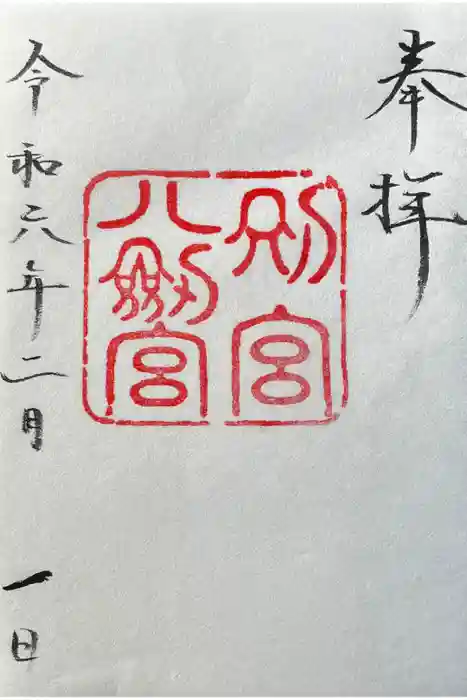 奉拝
別宮
八剱宮
令和六年二月一日